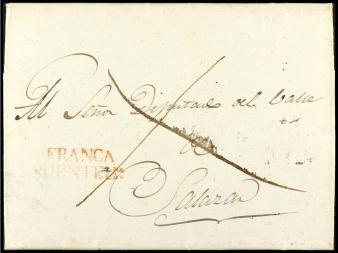 Al Señor Diputado del Valle
de
Salazar
FRANCA